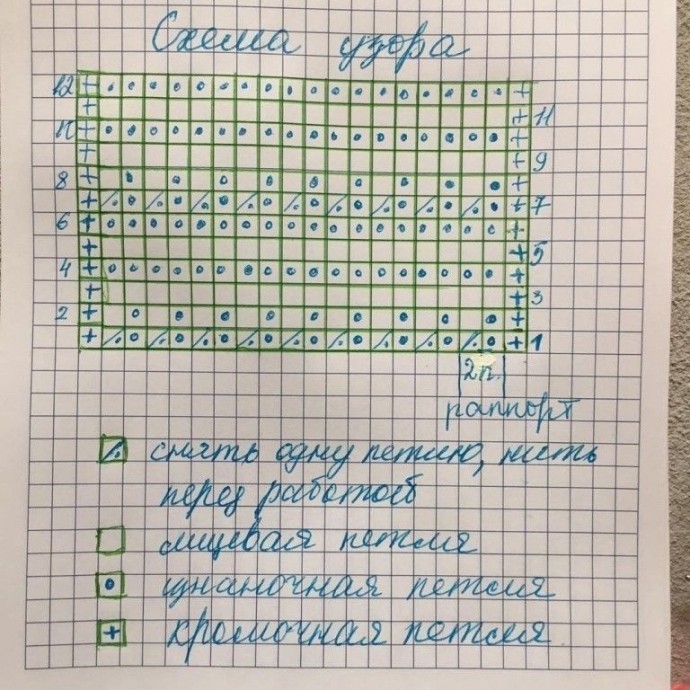 Схема узора
12
11
10
9
8
7
6
5
4
3
2
1
2п.
раппорт
снять одну петлю, нить
перед работой
лицевая петля
изнаночная петля
кромочная петля